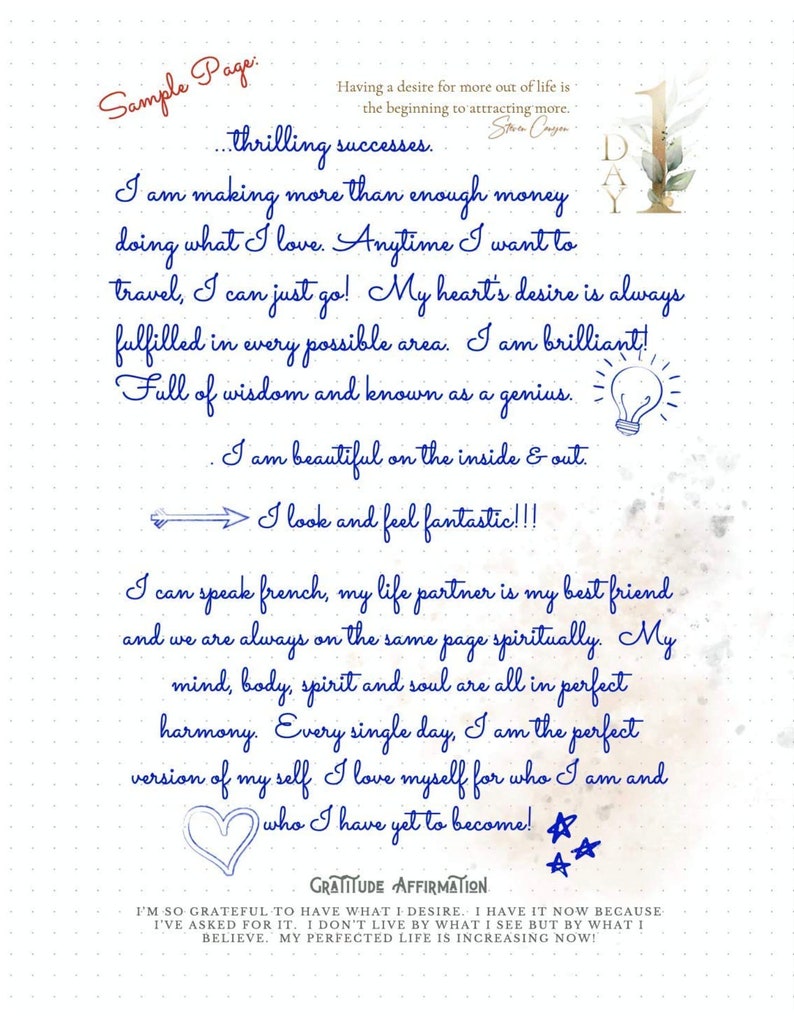 Sample Page:
Having a desire for more out of life is
the beginning to attracting more.
Steven Canyon
DAY 1
...thrilling successes.
I am making more than enough money
doing what I love. Anytime I want to
travel, I can just go! My heart's desire is always
fulfilled in every possible area. I am brilliant!
Full of wisdom and known as a genius.
. I am beautiful on the inside & out.
I look and feel fantastic!!!
I can speak french, my life partner is my best friend
and we are always on the same page spiritually. My
mind, body, spirit and soul are all in perfect
harmony. Every single day, I am the perfect
version of my self I love myself for who I am and
who I have yet to become!
GRATITUDE AFFIRMATION
I'M SO GRATEFUL TO HAVE WHAT I DESIRE. I HAVE IT NOW BECAUSE
I'VE ASKED FOR IT. I DON'T LIVE BY WHAT I SEE BUT BY WHAT I
BELIEVE. MY PERFECTED LIFE IS INCREASING NOW!